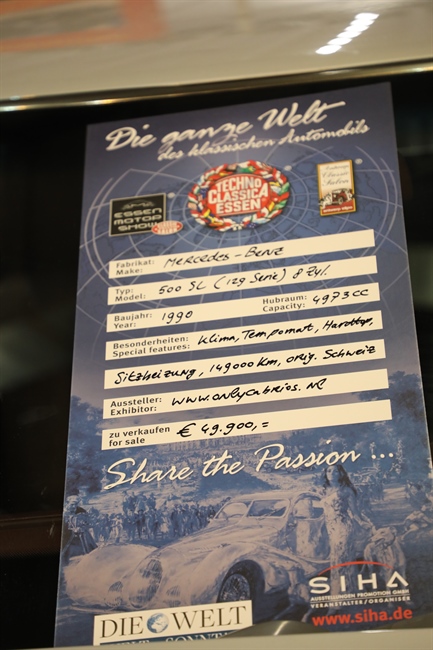 Die ganze Welt
des klassischen Automobils
ESSEN
MOTOR
SHOW
TECHNO
CLASSICA
ESSEN
Fabrikat: MERCEDES-BENZ
Make:
Typ: 500 SL (129 Serie) 8 Zyl.
Model:
Baujahr: 1990 Hubraum: 4973 CC
Year Capacity:
Besonderheiten: Klima, Tempomat, Hardtop,
Special features:
Sitzheizung, 149000 Km, orig. Schweiz
Aussteller: www.onlycabrios.nl
Exhibitor:
zu verkaufen € 49.900,=
for sale
Share the Passion ...
SIHA
AUSSTELLUNGEN PROMOTION GMBH
VERANSTALTER/ORGANISER
www.siha.de
DIE WELT